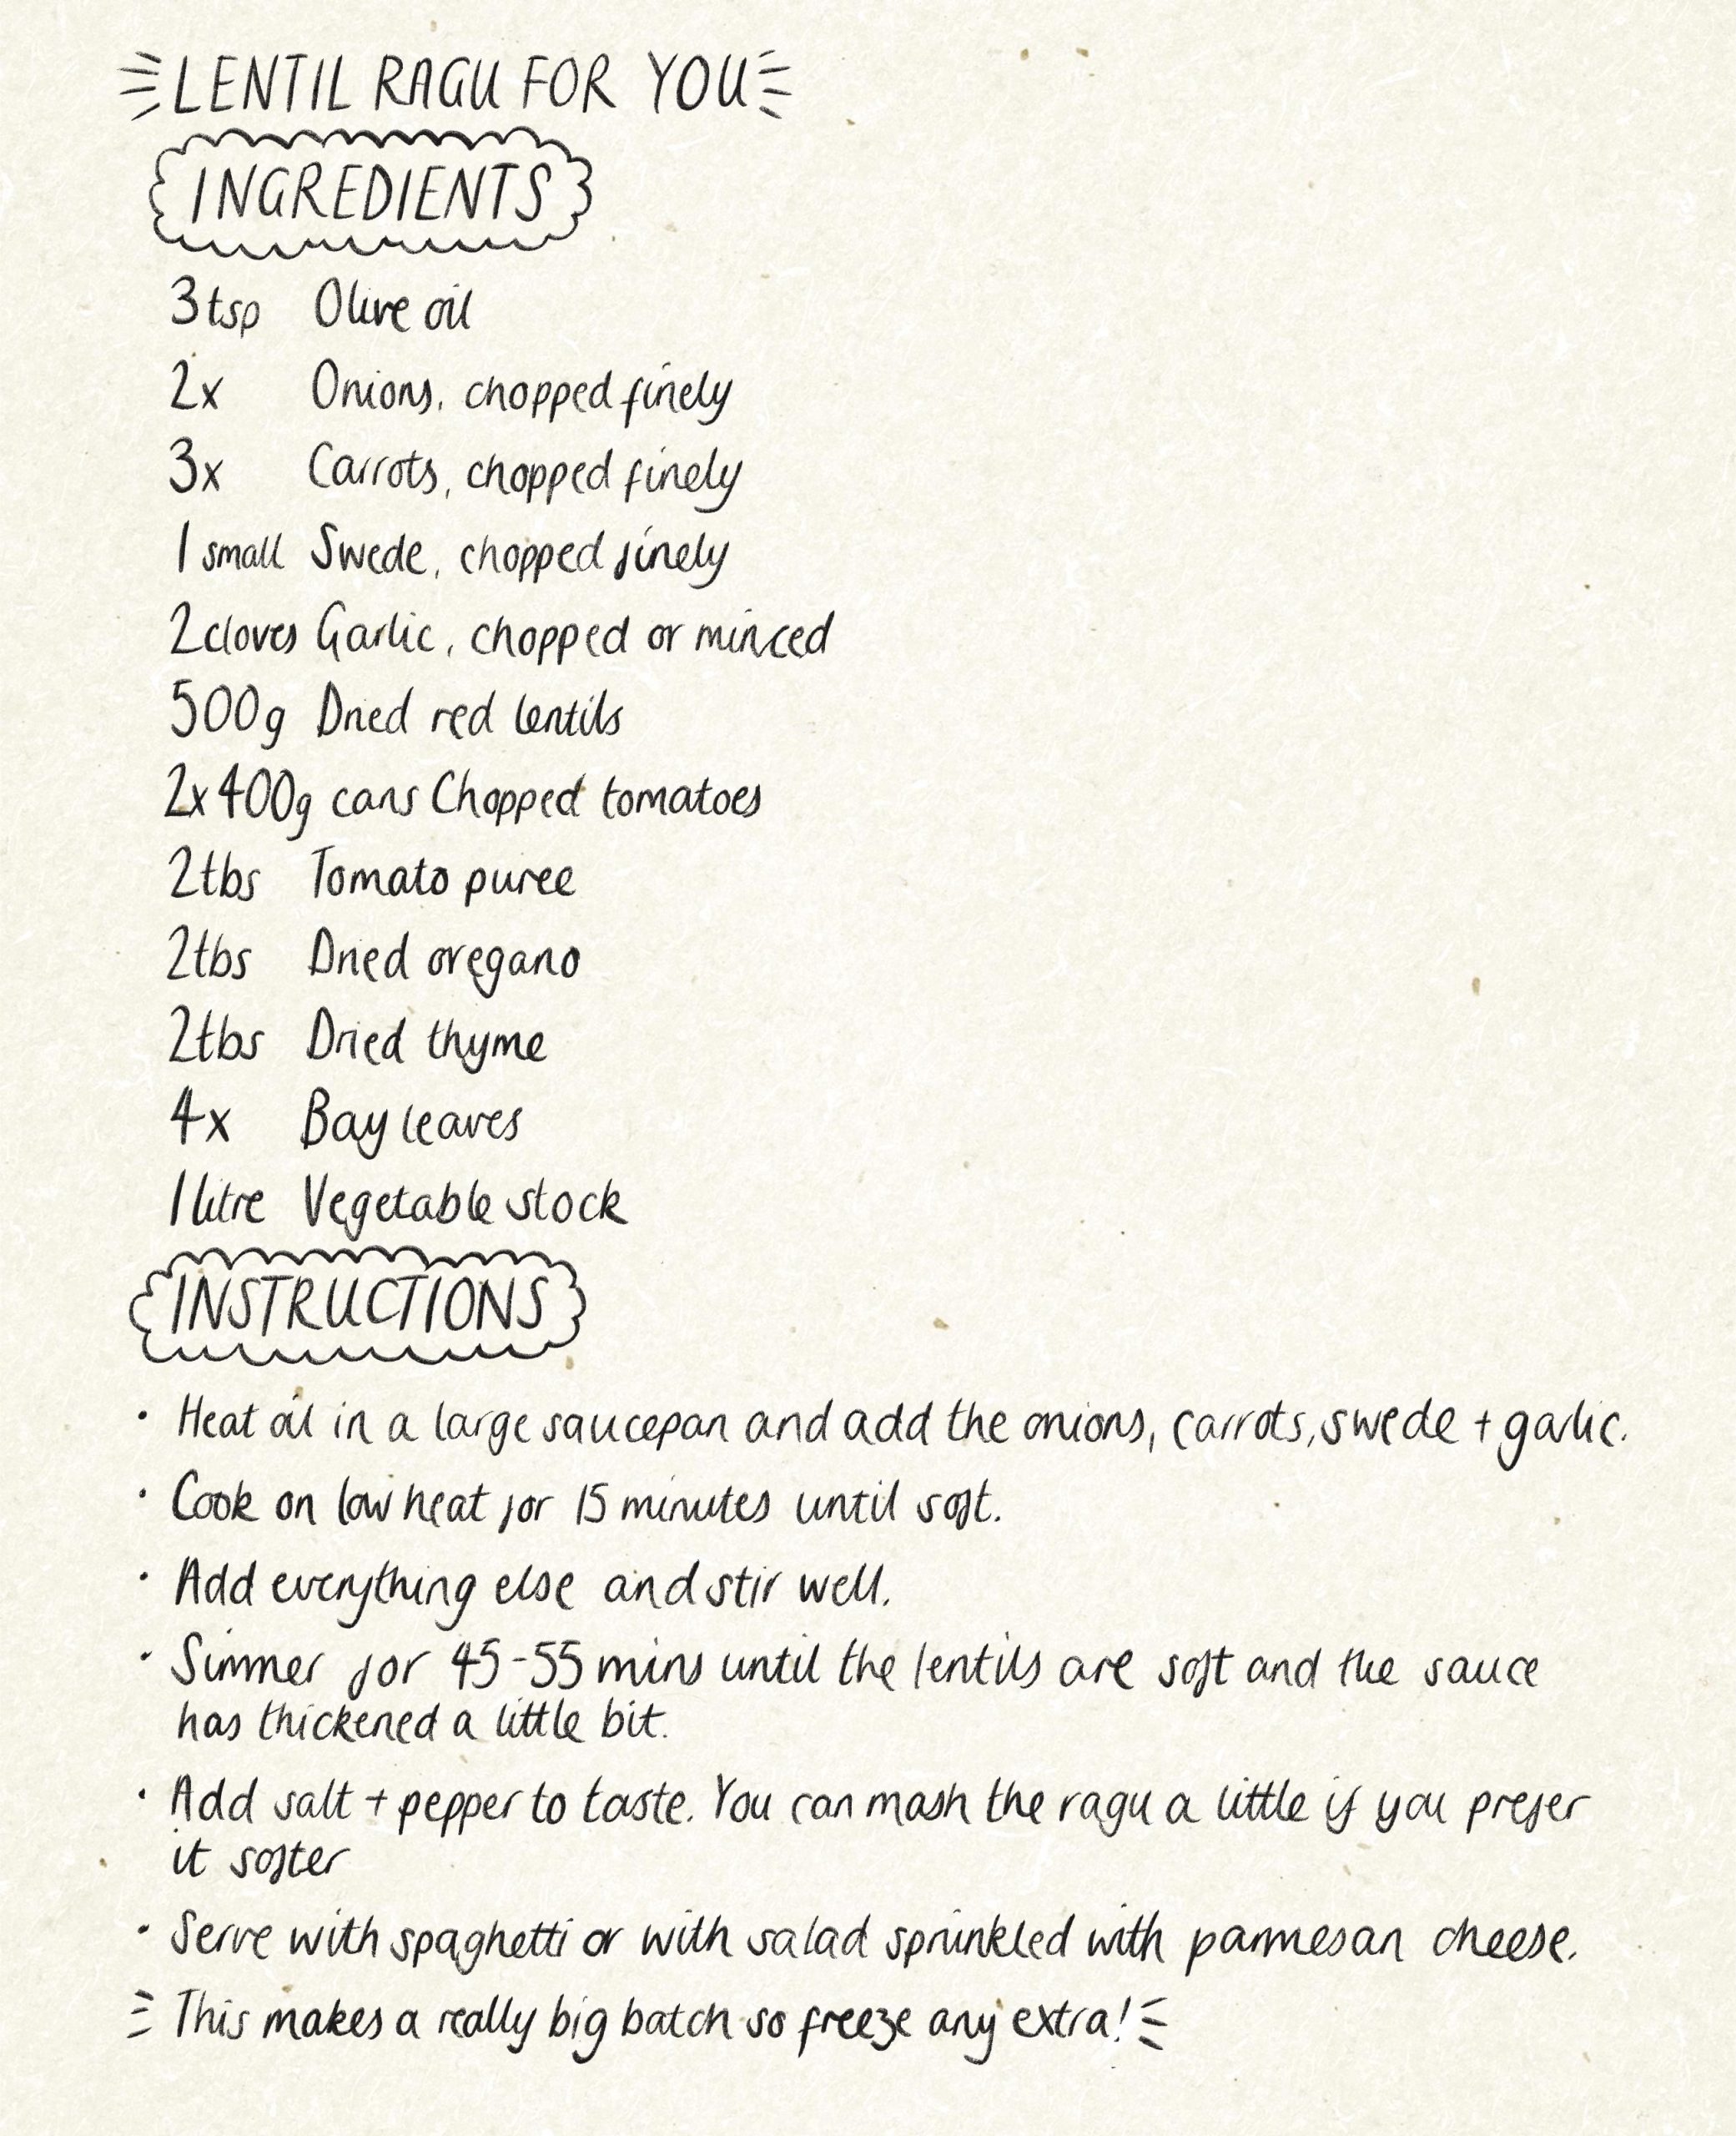 LENTIL RAGU FOR YOU
INGREDIENTS
3tsp Olive oil
2x Onions, chopped finely
3x Carrots, chopped finely
1 small Swede, chopped finely
2cloves Garlic, chopped or minced
500g Dried red lentils
2x400g cans Chopped tomatoes
2tbs Tomato puree
2tbs Dried oregano
2tbs Dried thyme
4x Bay leaves
1 litre Vegetable stock
INSTRUCTIONS
· Heat oil in a large saucepan and add the onions, carrots, swede + garlic.
· Cook on low heat for 15 minutes until soft.
· Add everything else and stir well.
· Simmer for 45-55 mins until the lentils are soft and the sauce
has thickened a little bit.
· Add salt + pepper to taste. You can mash the ragu a little if you prefer
it softer
· Serve with spaghetti or with salad sprinkled with parmesan cheese.
This makes a really big batch so freeze any extra!